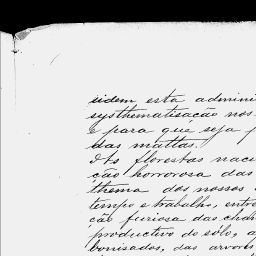 sidem esta admini
systhematisacão nos
e para que seja p
das mattas.
As florestas nac
ção horrorosa das
thema dos nossos
tempo e trabalho, entre
ção furiosa das cham
productivo do sólo, a
bonisados, das arvores